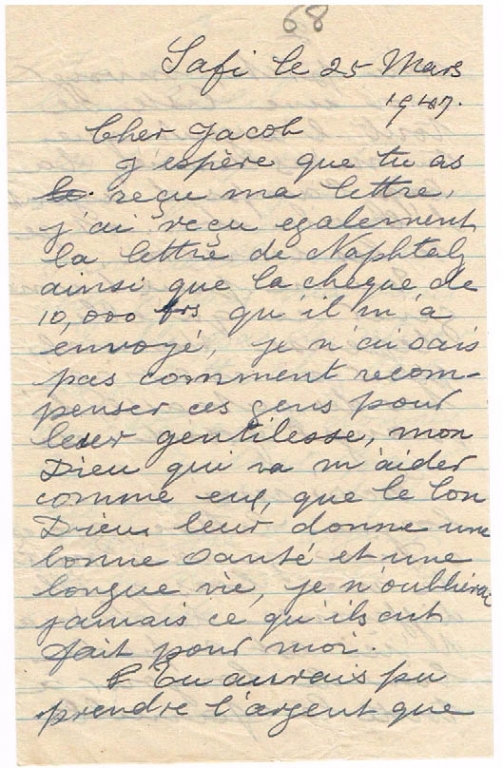 68
Safi le 25 Mars
1947.
Cher Jacob
j'espère que tu as
reçu ma lettre,
j'ai reçu egalement
la lettre de Naphtaly
ainsi que la cheque de
10,000 frs qu'il m'a
envoyé, je n'ai sais
pas comment recom-
penser ces gens pour
leur gentilesse, mon
Dieu qui va m'aider
comme eux, que le bon
Dieu leur donne une
bonne santé et une
longue vie, je n'oublierai
jamais ce qu'ils ont
fait pour moi.
Tu aurais pu
prendre l'argent que